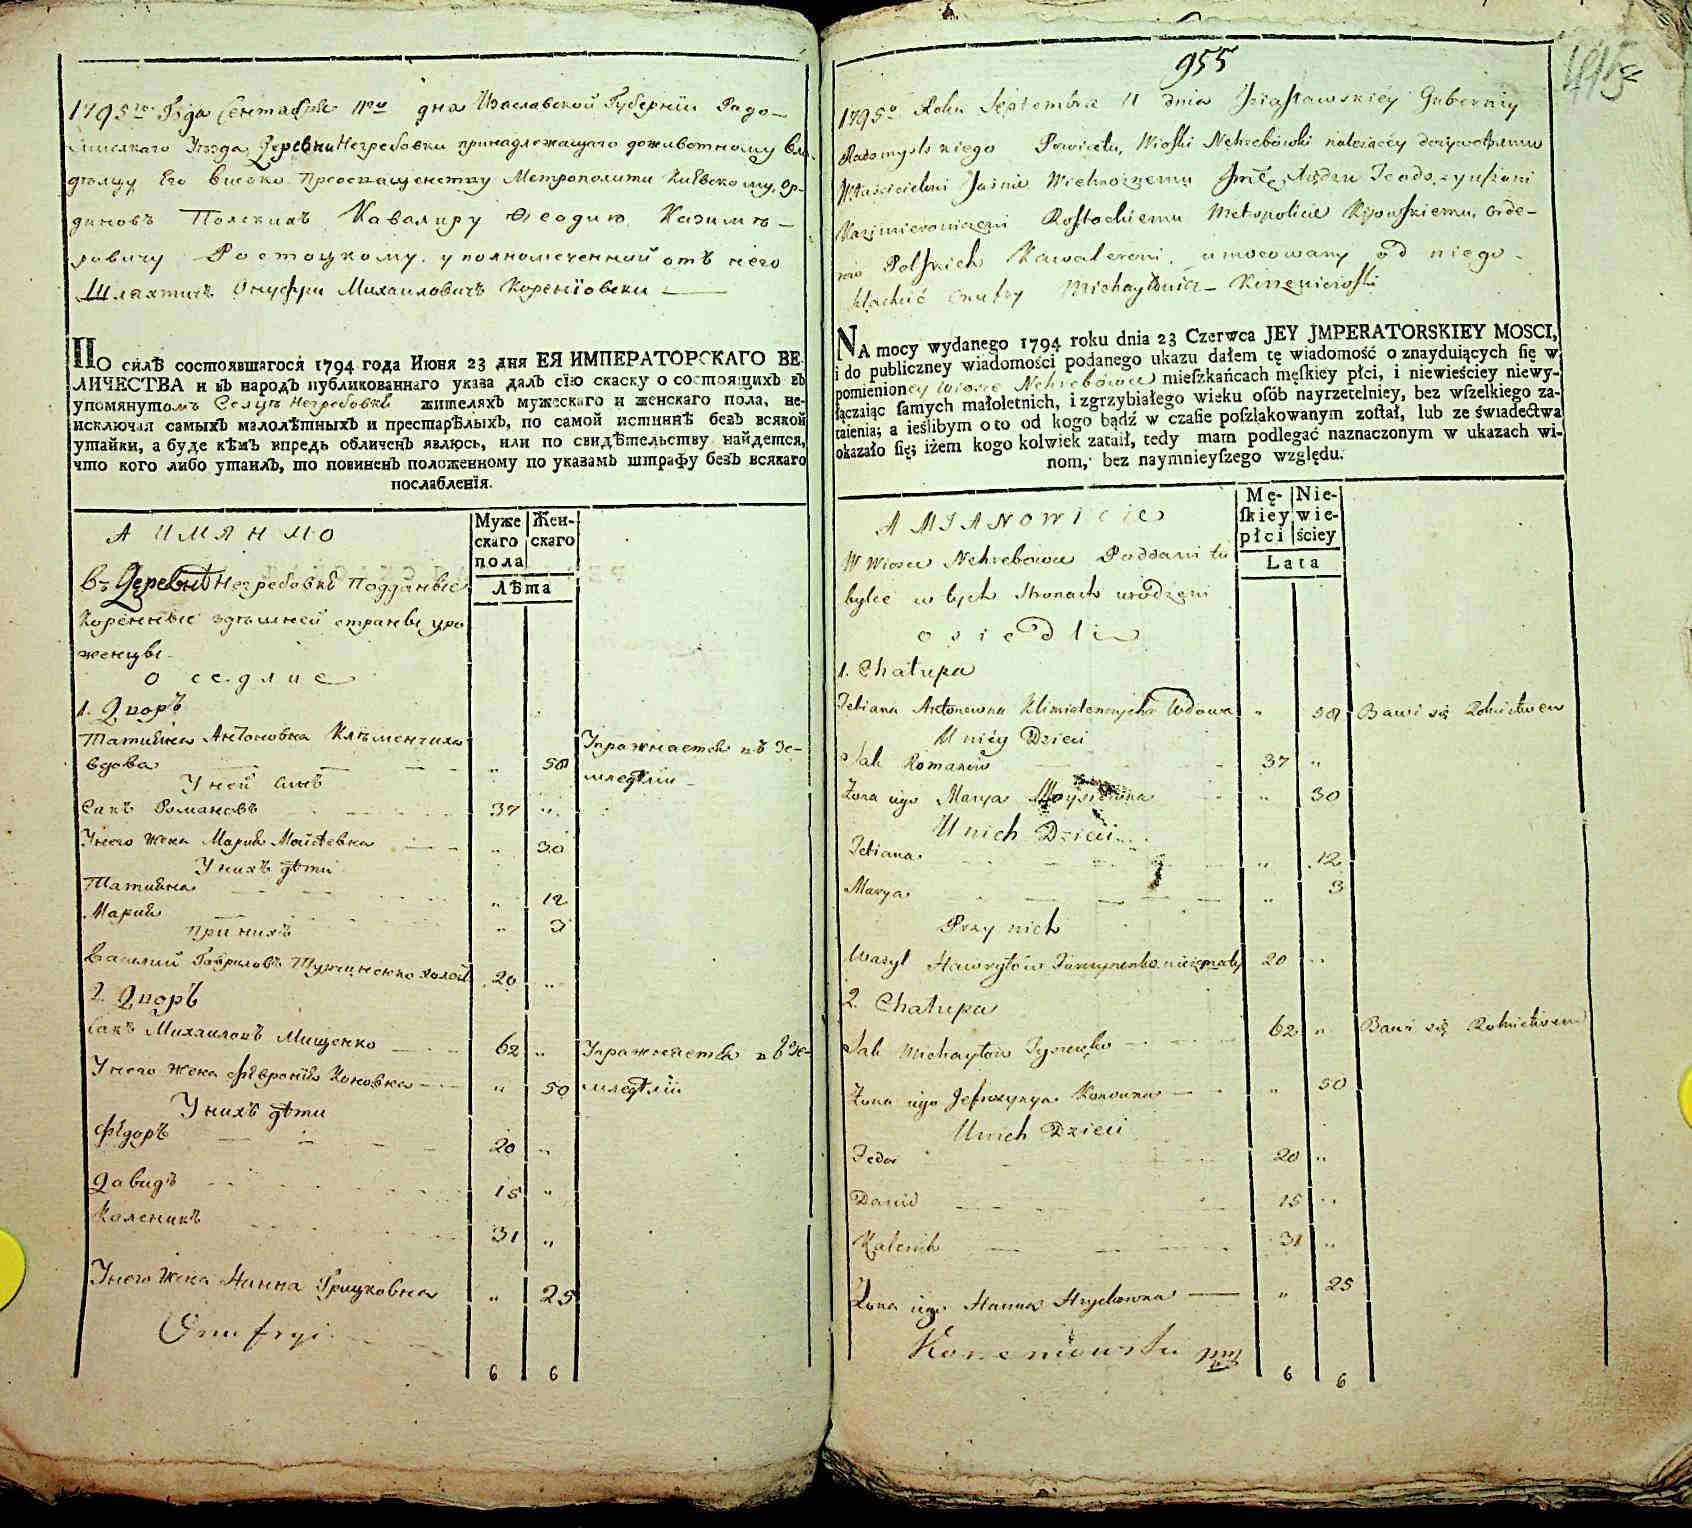 1795го Года Сентября 11го дня Изаславской Губернїи Радо-
мысльскаго Уезда Деревни Негребовки принадлежащаго доживотному вла-
дѣльцу Его высоко Преосвященству Метрополиту Кіевскому, Ор-
диновъ Полскихъ Кавалиру Феодию Казимѣ-
ровичу Ростоцкому уполномоченной отъ него
Шляхтичъ Онуфри Михаиловичъ Коренїовски
ПО силѣ состоявшагося 1794 года Июня 23 дня ЕЯ ИМПЕРАТОРСКАГО ВЕ-
ЛИЧЕСТВА и въ народъ публикованнаго указа далъ сїю скаску о состоящихъ въ
упомянутомъ Селѣ Негребовкѣ жителяхъ мужескаго и женскаго пола, не-
исключая самыхъ малолѣтныхъ и престарѣлыхъ, по самой истиннѣ безъ всякой
утайки, а буде кѣмъ впредь обличенъ явлюсь, или по свидѣтельству найдется,
что кого либо утаилъ, то повиненъ положенному по указамъ штрафу безъ всякаго
послабленїя.
А ИМЯННО
Муже
скаго
пола
Жен-
скаго
Лѣта
Въ Деревнѣ Негребовкѣ Подданые
Коренные здешней страны уро
женцы
оседлие
1. Дворъ
Татияна Антоновна Клѣменчиха
вдова „ 58 Упражняется въ зе-
мледѣлїи
У ней сынъ
Сакъ Романовъ 37 „
У него жена Мария Моисѣевна „ 30
У нихъ дѣти
Татияна „ 12
Мария „ 3
при нихъ
Василий Гавриловъ холой 20 „
2. Дворъ
Сакъ Михаиловъ Мищенко 62 „ Упражняется въ зе-
мледѣлїи
У него жена Февронїя Коновна „ 50
У нихъ дѣти
Фёдоръ 20 „
Давидъ 15 „
Каленикъ 31 „
У него жена Анна Грицковна „ 25
Onufryi
6 6
955
1795o Roku Septembra 11 dnia Iziasławskiey Guberniy
Radomyslskiego Powiatu, Wioski Nehrebowki należącey dożywotnemu
Właścicielowi Jaśnie Wielmożnemu
Kazimierowiczowi Rostockiemu Metropolicie Kijowskiemu, Orde-
row Polskich Kawalerowi, umocowany od niego
Onufry Michayłowicz
NA mocy wydanego 1794 roku dnia 23 Czerwca JEY JMPERATORSKIEY MOSCI,
i do publiczney wiadomości podanego ukazu dałem tę wiadomość o znayduiących ſię w
pomienioney Wiosce Nehrebowce mieſzkańcach męſkiey płci, i niewieściey niewy-
łączaiąc ſamych małoletnich, i zgrzybiałego wieku oſób nayrzetelniey, bez wſzelkiego za-
taienia; a ieślibym o to od kogo bądź w czaſie poſzlakowanym zoſtał, lub ze świadectwa
okazało ſię; iżem kogo kolwiek zataił, tedy mam podlegać naznaczonym w ukazach wi-
nom, bez naymnieyſzego względu.
A MIANOWICIE
Mę-
ſkiey
płci
Nie-
wie-
ściey
Lata
W Wiosce Nehrebowce Poddani tu
bylce w tych Stronach urodzeni
osiedli
1. Chałupa
Tetiana Antonowna Klimienczycha Wdowa „ 58 Bawi się Rolnictwem
U niey Dzieci
Sak Romanow 37 „
Żona iego Marya Moysiewna „ 30
U nich Dzieci
Tetiana „ 12
Marya „ 3
Przy nich
Wasyl Hawryłow nieżonaty 20 „
2. Chałupa
Sak Michayłow 62 „ Bawi się Rolnictwem
Żona iego Jefrozynya Konowna „ 50
U nich Dzieci
Fedor 20 „
Dawid 15 „
Kalenik 31 „
Żona iego Hanna Hryckowna „ 25
Koreniowski mp
6 6